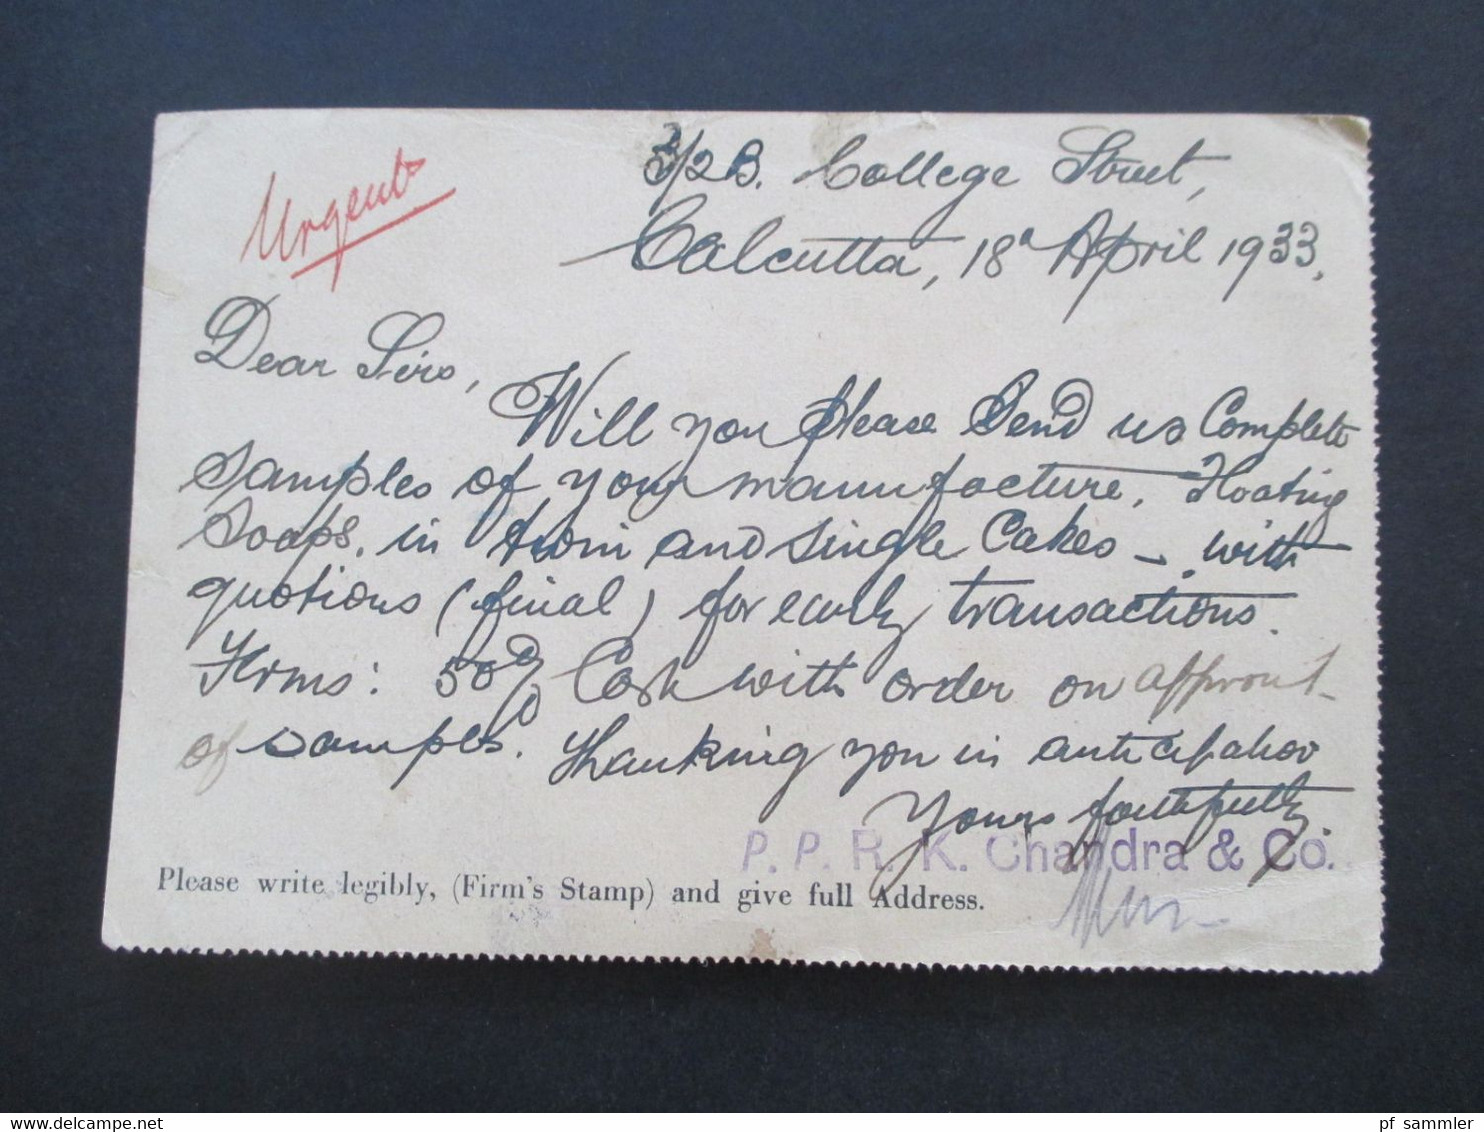 Urgent
3/2B. College Street,
Calcutta, 18th April 1933.
Dear Sirs,
Will you please send us Complete
samples of your manufacture, Floating
Soaps, in twin and single Cakes – with
quotions (final) for early transactions.
Terms: 50% Cash with order on
of samples. Thanking you in anticipation
Yours faithfully
P. P. R. K. Chandra & Co.
Please write legibly, (Firm's Stamp) and give full Address.
pf sammler
delcampe.net